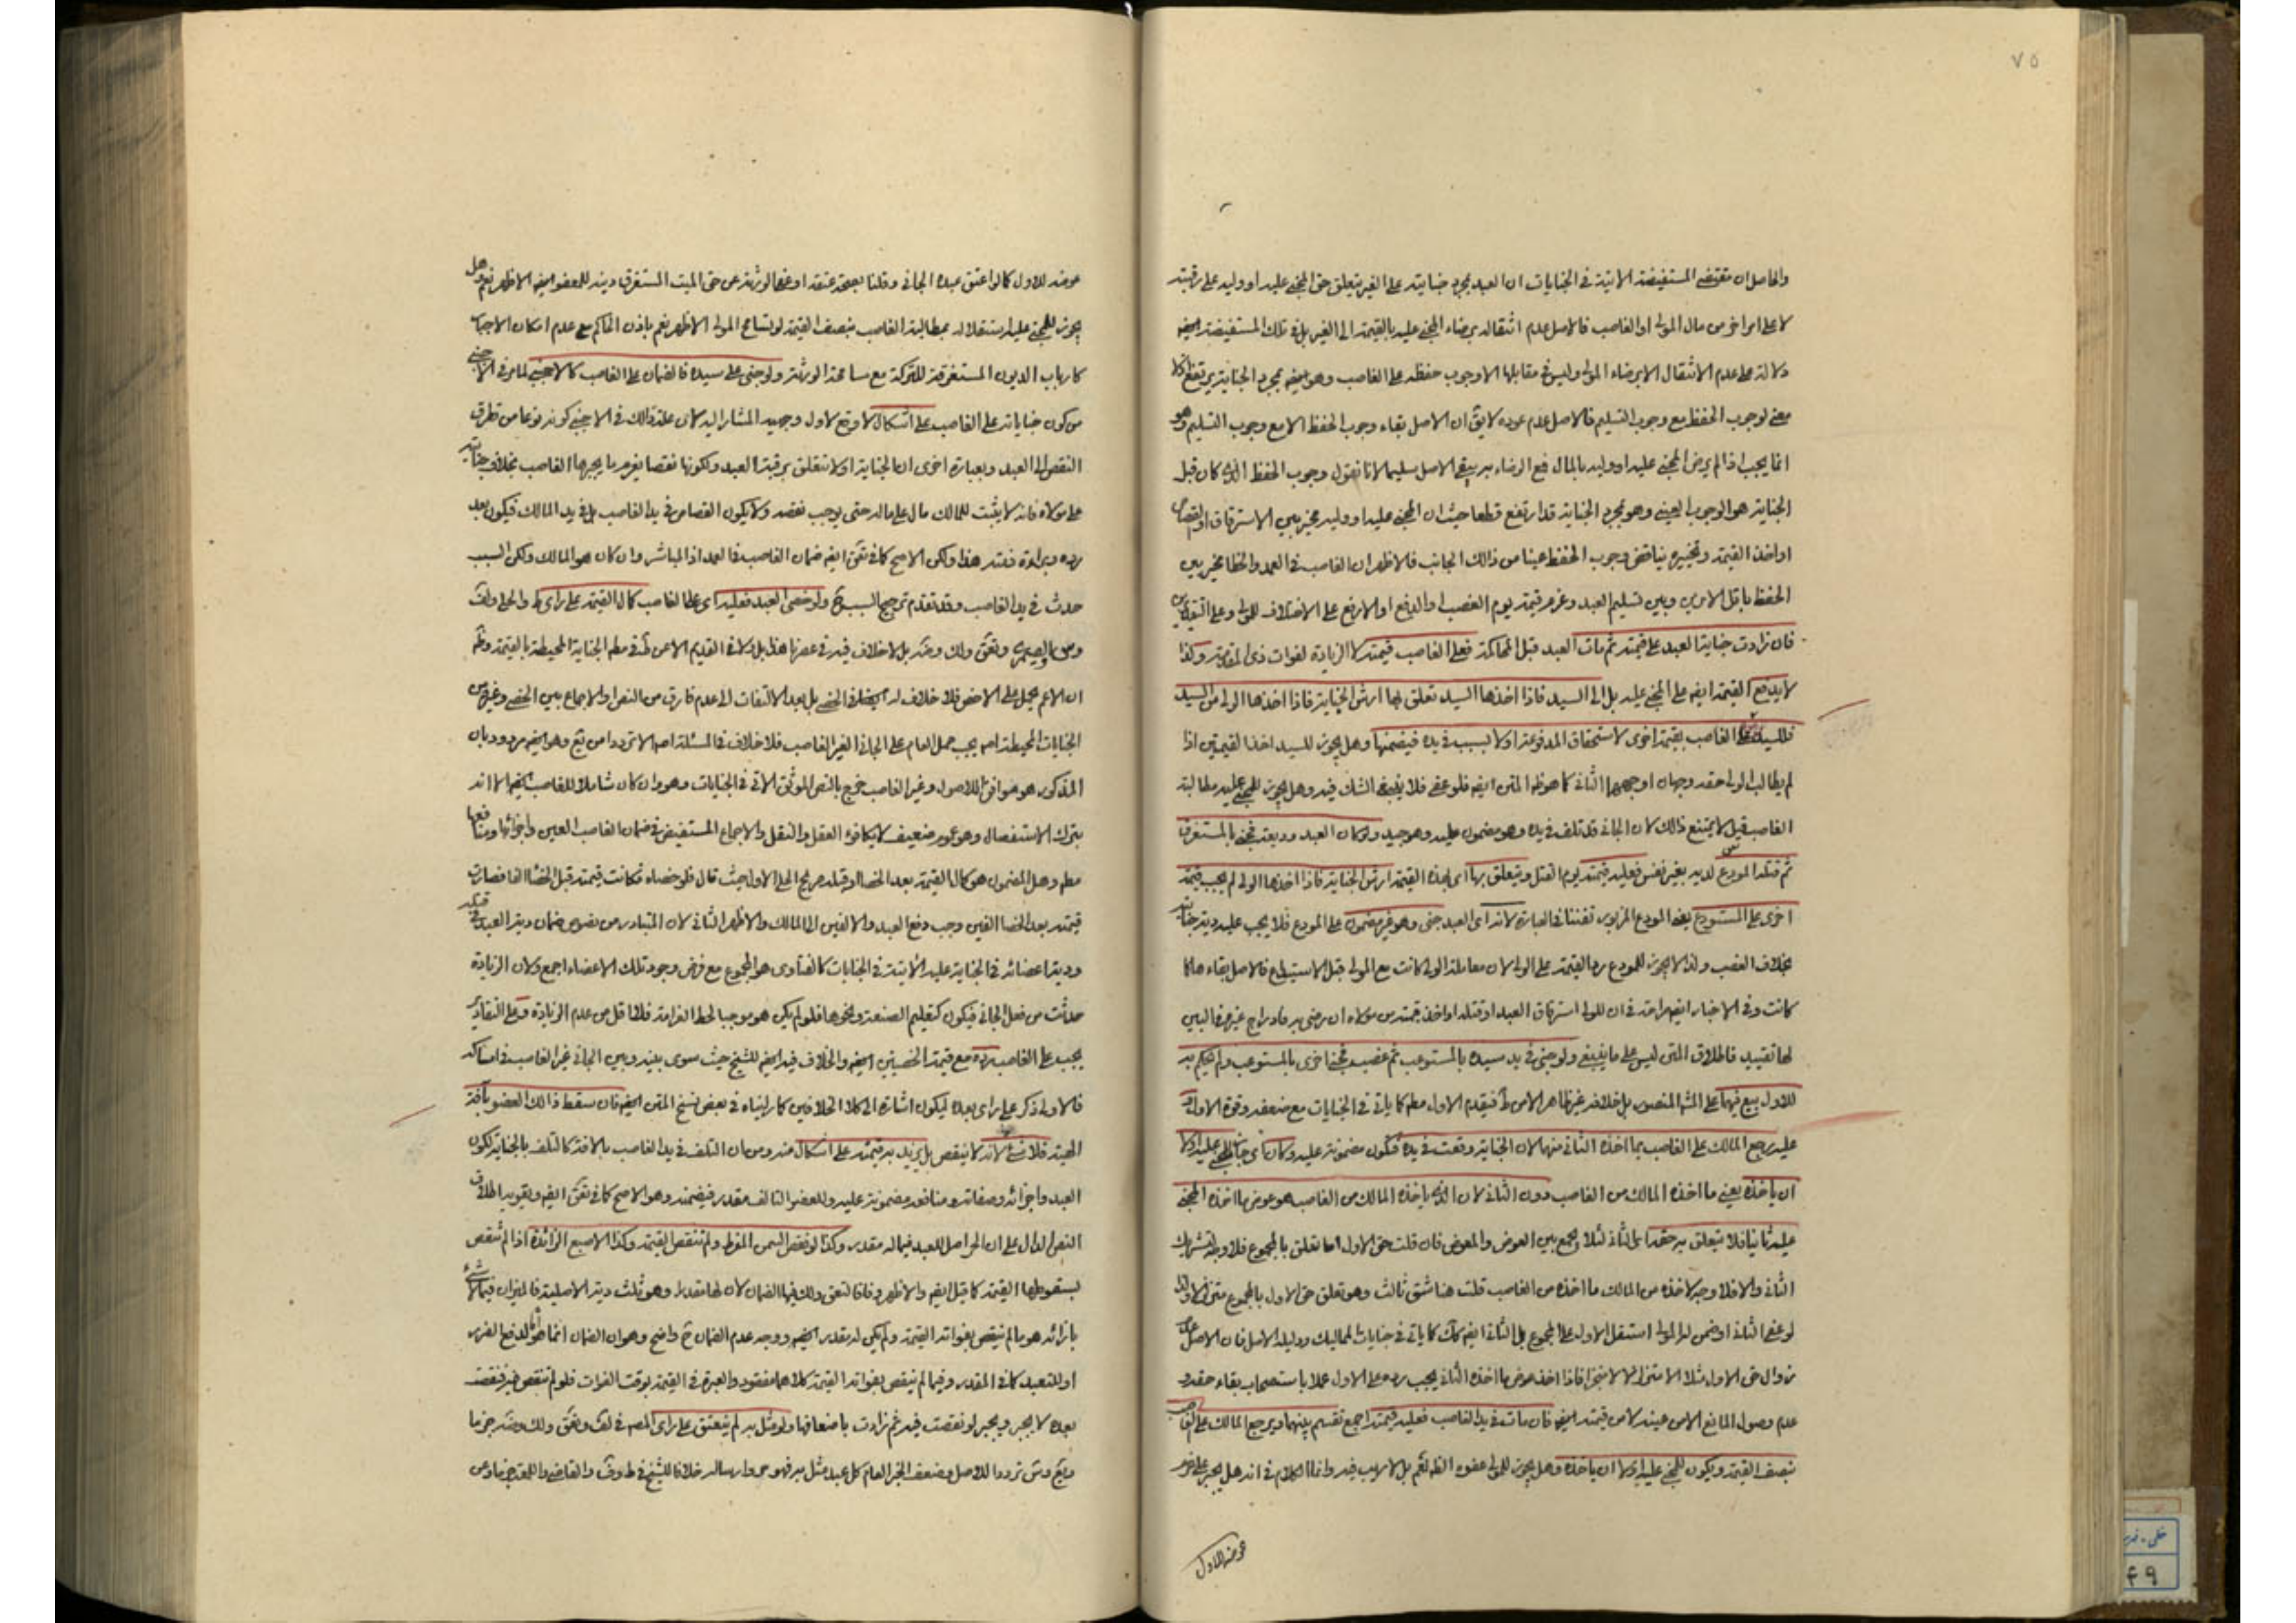 ٧٥
والحاصل ان مقتضى المستفيضة الاتية في الجنايات ان العبد بمجرد جنايته على الغير يتعلق حق المجنى عليه او وليه على رقبته
لا على امر اخر من مال المولى او الغاصب فالاصل عدم انتقاله برضاء المجنى عليه بالقيمة الى الغير بل في تلك المستفيضة ايضا
دلالة على عدم الانتقال الا برضاء المولى وليس في مقابلها الا وجوب حفظه على الغاصب وهو ايضا بمجرد الجناية يرتفع
معنى لوجوب الحفظ مع وجوب التسليم فالاصل عدم عوده لا يق ان الاصل بقاء وجوب الحفظ الا مع وجوب التسليم وهو
انما يجب اذا لم يرض المجنى عليه او وليه بالمال فمع الرضاء به يبقى الاصل سليما لانا نقول وجوب الحفظ الذي كان قبل
الجناية هو الوجوب العيني وهو بمجرد الجناية قد ارتفع قطعا حيث ان المجنى عليه او وليه مخير بين الاسترقاق او القصاص
او اخذ القيمة وتخييره يناقض وجوب الحفظ عينا من ذلك الجانب فالاظهر ان الغاصب في العمد والخطا مخير بين
الحفظ باقل الامرين وبين تسليم العبد وغرم قيمته يوم الغصب او الدفع او الارفع على الاختلاف للمولى وعلى التقديرين
فان زادت جناية العبد على قيمته ثم مات العبد قبل المحاكمة فعلى الغاصب قيمته لا الزيادة لفوات ذي المقدمة وكذا
لا يدفع القيمة ايضا على المجنى عليه بل الى السيد فاذا اخذها السيد تعلق بها ارش الجناية فاذا اخذها الولى من السيد
فللسيد على الغاصب بقيمة اخرى لاستحقاق المدفوعة اولا بسبب في يده فيضمنها وهل يجوز للسيد اخذ القيمتين اذا
لم يطالب الولى حقه وجهان اوجههما الثاني كما هو ظ المتن ايضا فلو عفى فلا ينبغي الشك فيه وهل يجوز للمجنى عليه مطالبة
الغاصب قيل لا يمتنع ذلك لان الجاني قد تلف في يده وهو مضمون عليه وهو جيد ولو كان العبد وديعة فجنى بالمستغرق
ثم قتله المودع لديه بغير نفس فعليه قيمته يوم القتل ويتعلق بها اى بهذه القيمة ارش الجناية فاذا اخذها الولى لم يجب قيمة
اخرى على المستودع يعني المودع المزبور تفننا في العبارة لانه اى العبد جنى وهو غير مضمون على المودع فلا يجب عليه دية جنايته
بخلاف الغصب ولذا لا يجوز للمودع رد القيمة على الولى لان معاملة الولى كانت مع المولى قبل الاستيداع فالاصل بقاءها كما
كانت وفي الاخبار ايضا صراحة في ان للولى استرقاق العبد او قتله او اخذ قيمته من مولاه ان رضى به فادراج غيره في البين
لها تقييد فاطلاق المتن ليس على ما ينبغي ولو جنى في يد سيده بالمستوعب ثم غصب فجنى اخرى بالمستوعب ولم يحكم به
للاول بيع فيهما على المش المنصور بل خلافه غير ظاهر الا من ط فيقدم الاول مطم كما ياتي في الجنايات مع ضعفه وقوة الاول و
عليه يرجع المالك على الغاصب بما اخذه الثاني منهما لان الجناية وقعت في يده فتكون مضمونة عليه وكان اى جاز للمجنى عليه اولا
ان ياخذه يعني ما اخذه المالك من الغاصب دون الثاني لان الذي ياخذه المالك من الغاصب هو عوض ما اخذه المجنى
عليه ثانيا فلا يتعلق به حقه اى الثاني لئلا يجمع بين العوض والمعوض فان قلت حق الاول اما تعلق بالمجموع فلا وجه لتشريك
الثاني والا فلا وجه لاخذه من المالك ما اخذه من الغاصب قلت هنا شق ثالث وهو تعلق حق الاول بالمجموع
لو عفى الثاني او ضمن له المولى استقل الاول على المجموع بل الثاني ايضا كك كما ياتي في جنايات المماليك ودليله الاصل فان الاصل عدم
زوال حق الاول فاذا اخذ عوض ما اخذه الثاني يجب رده على الاول عملا باستصحاب بقاء حقه و
عدم وصول المانع الا من عينه لا من قيمته ايضا فان مات في يد الغاصب فعليه قيمته اجمع تقسم بينهما ويرجع المالك على الغاصب
بنصف القيمة ويكون للمجنى عليه اولا ان ياخذه وهل يجوز للمولى عفوه الظ نعم بل لا ريب فيه وانما الكلام في انه هل يجبر على غرم
عوضه للاول
عوضه للاول كما لو اعتق عبده الجاني وقلنا بصحة عتقه او عفى الورثة عن حق الميت المستغرق دينه للعفو ايضا الاظهر نعم وهل
يجوز للمجنى عليه استقلاله بمطالبة الغاصب بنصف القيمة لو تسامح المولى الاظهر نعم باذن الحاكم مع عدم امكان الاجبار
كارباب الديون المستغرقة للتركة مع مسامحة الورثة ولو جنى على سيده فالضمان على الغاصب كالاجنبي لما مر في الاجنبي
من كون جناياته على الغاصب على اشكال لا وقع لاول وجهيه المشار اليه لان علة ذلك في الاجنبي كونه نوعا من تطرق
النقص الى العبد وبعبارة اخرى ان الجناية اولا تتعلق برقبة العبد ولكونها نقصا يغرم ما يجبرها الغاصب بخلاف جنايته
على مولاه فانه لا يثبت للمالك مال على ماله حتى يوجب نقصه ولا يكون القصاص في يد الغاصب بل في يد المالك فيكون بعد
رده وبراءة ذمته هذا ولكن الاصح كما في تق ايضا ضمان الغاصب في العمد اذ المباشر وان كان هو المالك ولكن السبب
حدث في يد الغاصب وقد تقدم ترجيح السبب ولو خصى العبد فعليه اى على الغاصب كمال القيمة على راى ط والحلى ولف
ان الاعم يحمل على الاخص فلا خلاف له ايضا في الخصى بل بعد الالتفات الى عدم فارق من النص او الاجماع بين الخصى وغيره من
الجنايات المحيطة اصلا يجب حمل العام على الجاني الغير الغاصب فلا خلاف في المسئلة اصلا الا تردد من يع وهو ايضا مردود بان
المذكور هو موافق للاصول وغير الغاصب خرج بالنص الموثق الاتي في الجنايات وهو وان كان شاملا للغاصب ايضا الا انه
بترك الاستفصال وهو عموم ضعيف لا يكافؤ العقل والنقل والاجماع المستفيض في ضمان الغاصب العين واجزائها ومنافعها
مطم وهل المضمون هو كمال القيمة بعد الخصا او قبله صريح الحلى الاول حيث قال فلو خصاه فكانت قيمته قبل الخصا الفا فصارت
قيمته بعد الخصا الفين وجب دفع العبد والالفين الى المالك والاظهر الثاني لان المتبادر من نصوص ضمان دية العبد في قتله
ودية اعضائه في الجناية عليه الاتية في الجنايات كالفتاوى هو المجموع مع فرض وجود تلك الاعضاء اجمع ولان الزيادة
حدثت من فعل الجاني فيكون كتعليم الصنعة ونحوها فلو لم يكن هو موجبا لحط الغرامة فلا اقل من عدم الزيادة وعلى التقادير
يجب على الغاصب رده مع قيمة الخصيتين ايضا والخلاف فيه ايضا للشيخ حيث سوى بينه وبين الجاني غير الغاصب في امساكه
فالاولى ذكر على راى بعده ليكون اشارة الى كلا الخلافين كما رايناه في بعض نسخ المتن ايضا فان سقط ذلك العضو بافة
الهية فلا شئ لانه لا ينقص بل يزيد به قيمته على اشكال منه ومن ان التلف في يد الغاصب بالافة كالتلف بالجناية لكون
العبد واجزائه وصفاته ومنافعه مضمونة عليه وللعضو التالف مقدر فيضمنه وهو الاصح كما في تق ايضا ويقويه اطلاق
النص الدال على ان الحر اصل للعبد فيما له مقدر وكذا لو نقص السمن المفرط ولم تنقص القيمة وكذا الاصبع الزائدة اذا لم تنقص
بسقوطها القيمة كما قيل ايضا والاظهر وفاقا لتعق ولك فيها الضمان لان لها مقدرا وهو ثلث دية الاصلية فالميزان فيما لا شئ
بازائه هو ما لم ينقص بفواته القيمة ولم يكن له مقدر ايضا ووجه عدم الضمان ح واضح وهو ان الضمان انما هو لدفع الضرر
او للتعبد كما في المقدر وفيما لم ينقص بفواته القيمة كلاهما مفقود والعبرة في القيمة بوقت الفوات فلو لم تنقص فيه فنقصت
بعده لا يجبر ويجبر لو نقصت فيه ثم زادت باضعافها ولو مثل به لم ينعتق على راى المصم في لف وتعق ولك وضه جزما
ويع وس ترددا للاصل وضعف الخبر العام كل عبد مثل به فهو حر وارساله خلافا للشيخ في ط وف والقاضي